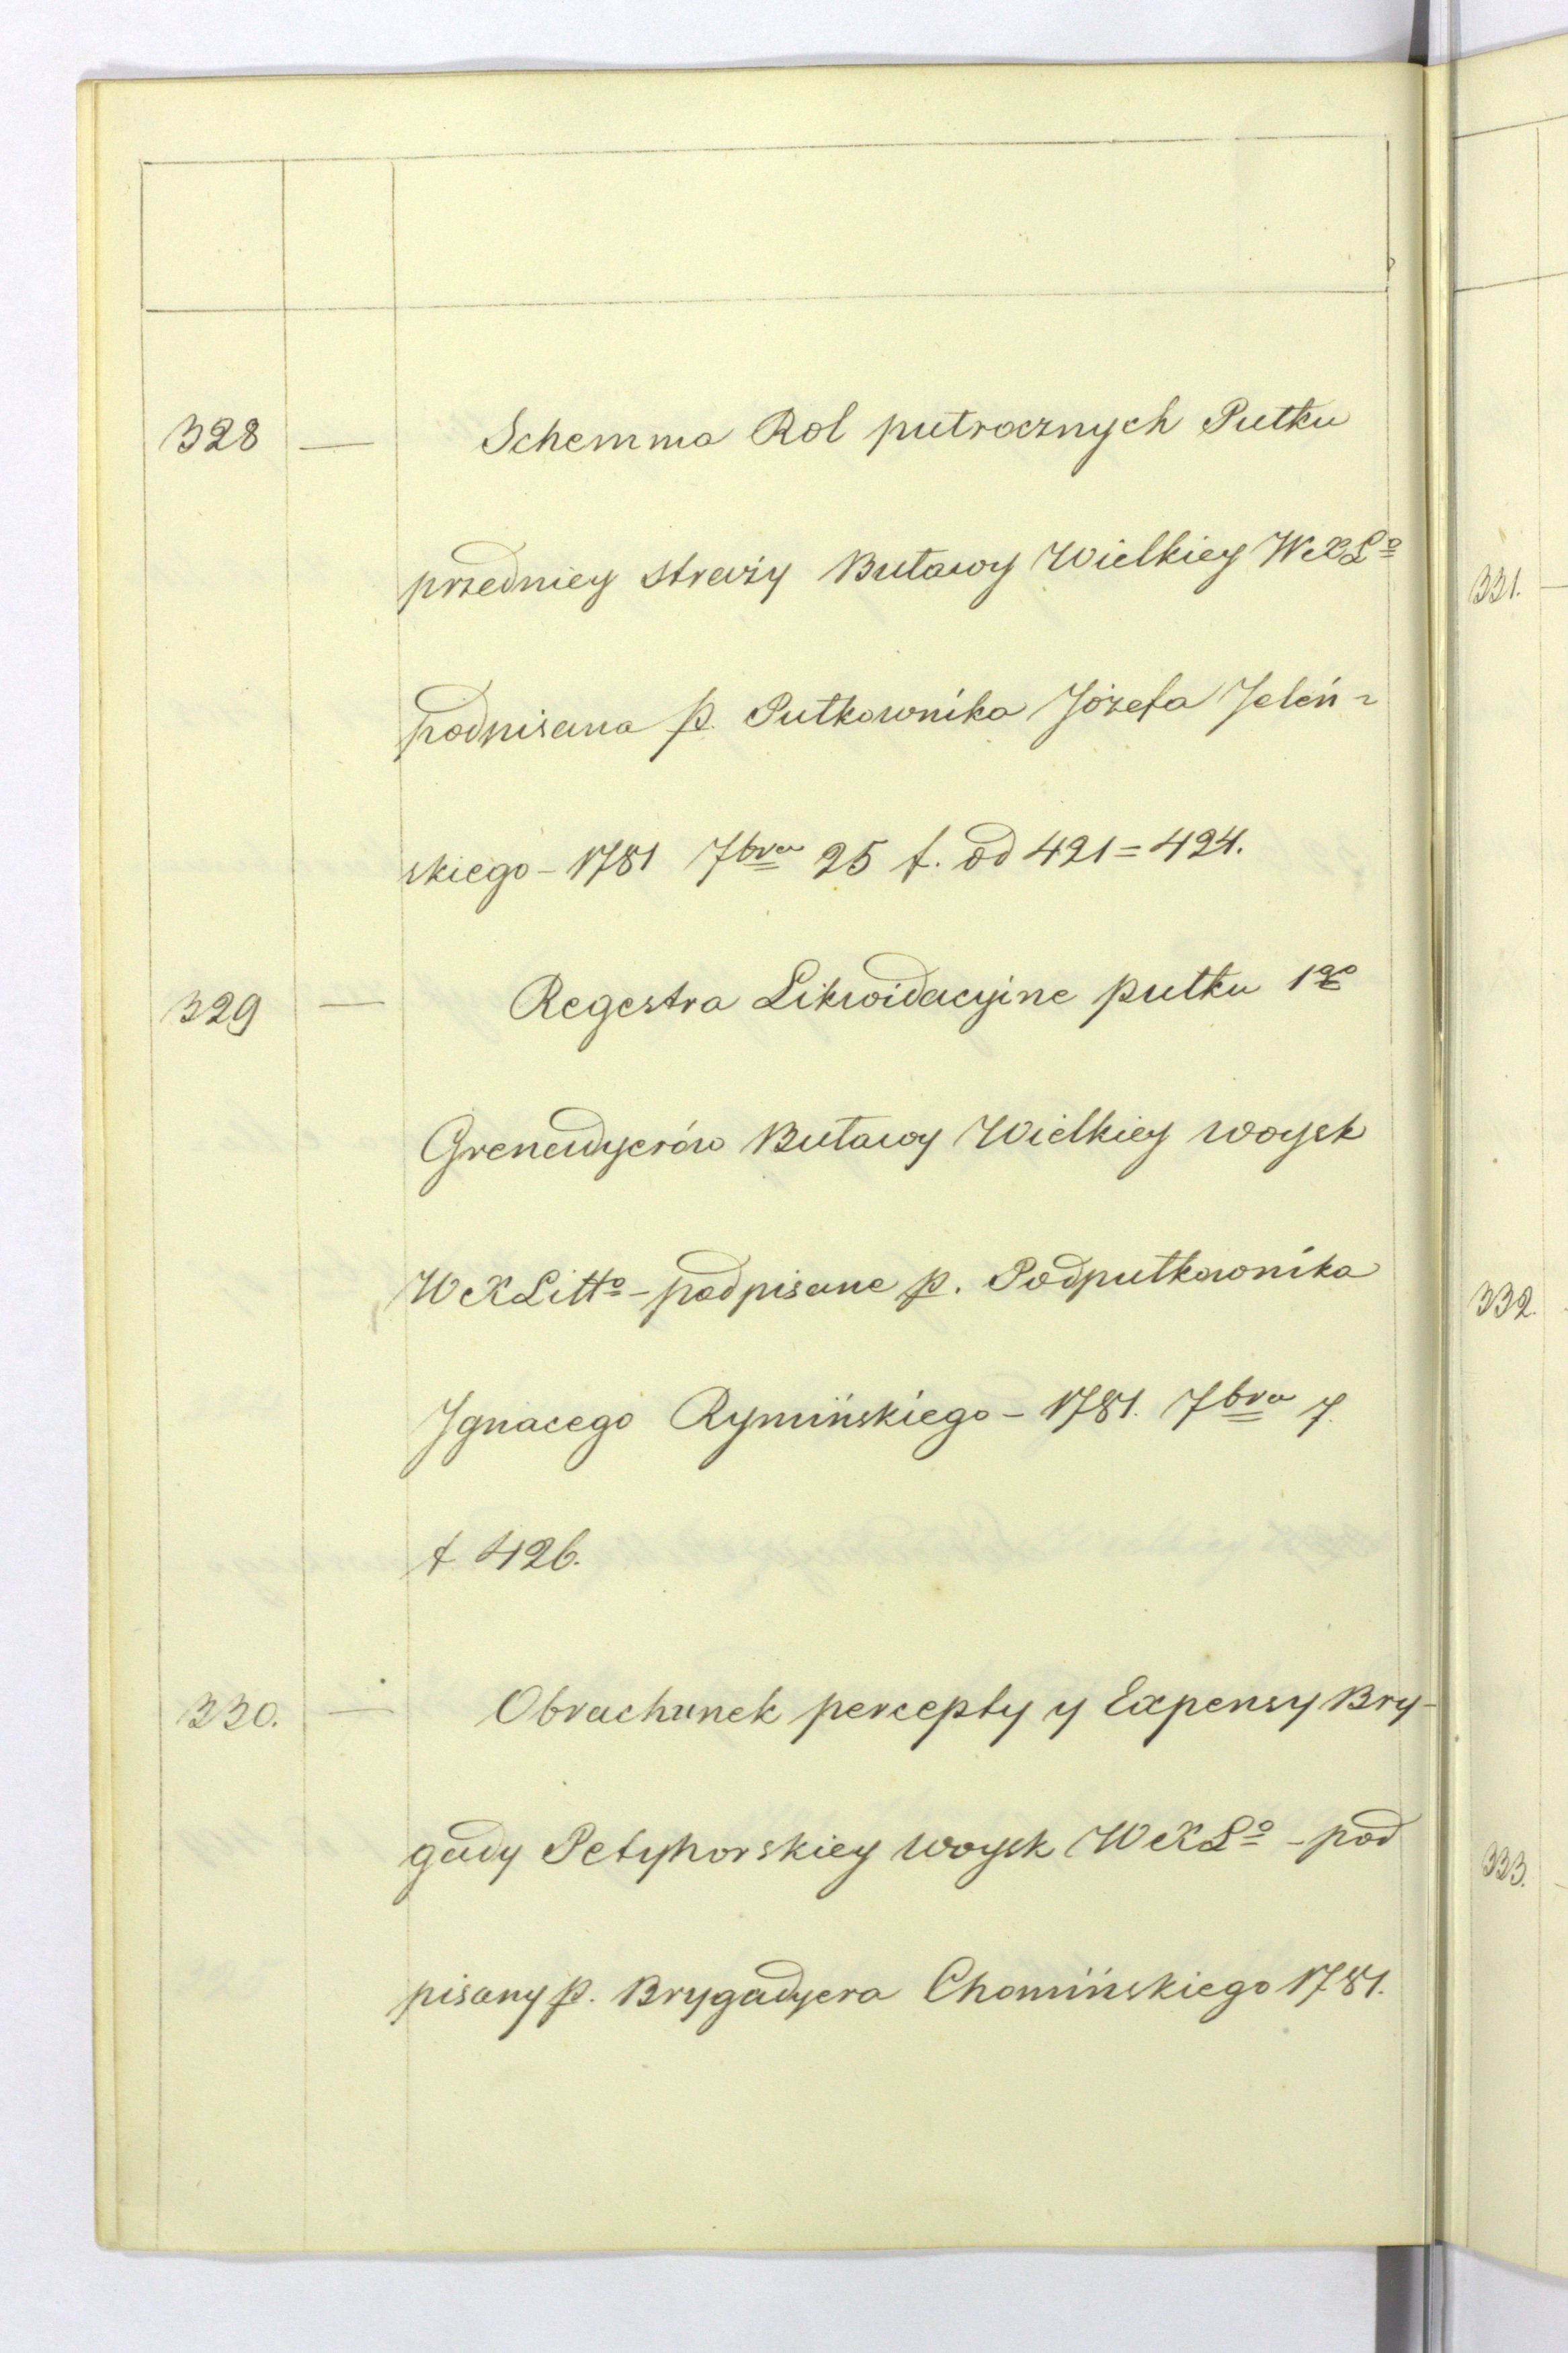 328 — Schemma Rol pułrocznych Pułku
przedniey straży Buławy Wielkiey WXLº
podpisana p. Pułkownika Józefa Jeleń=
skiego – 1781 7bra 25 f. od 421=424.
329 — Regestra Likwidacyine pułku 1go
Grenadyerów Buławy Wielkiey woysk
WXLittº – podpisane p. Podpułkownika
Ignacego Rymińskiego – 1781. 7bra 7.
f 426.
330. — Obrachunek percepty y Expensy Bry-
gady Petyhorskiey woysk WXLº – pod
pisany p. Brygadyera Chomińskiego 1781.
331. —
332.
333.